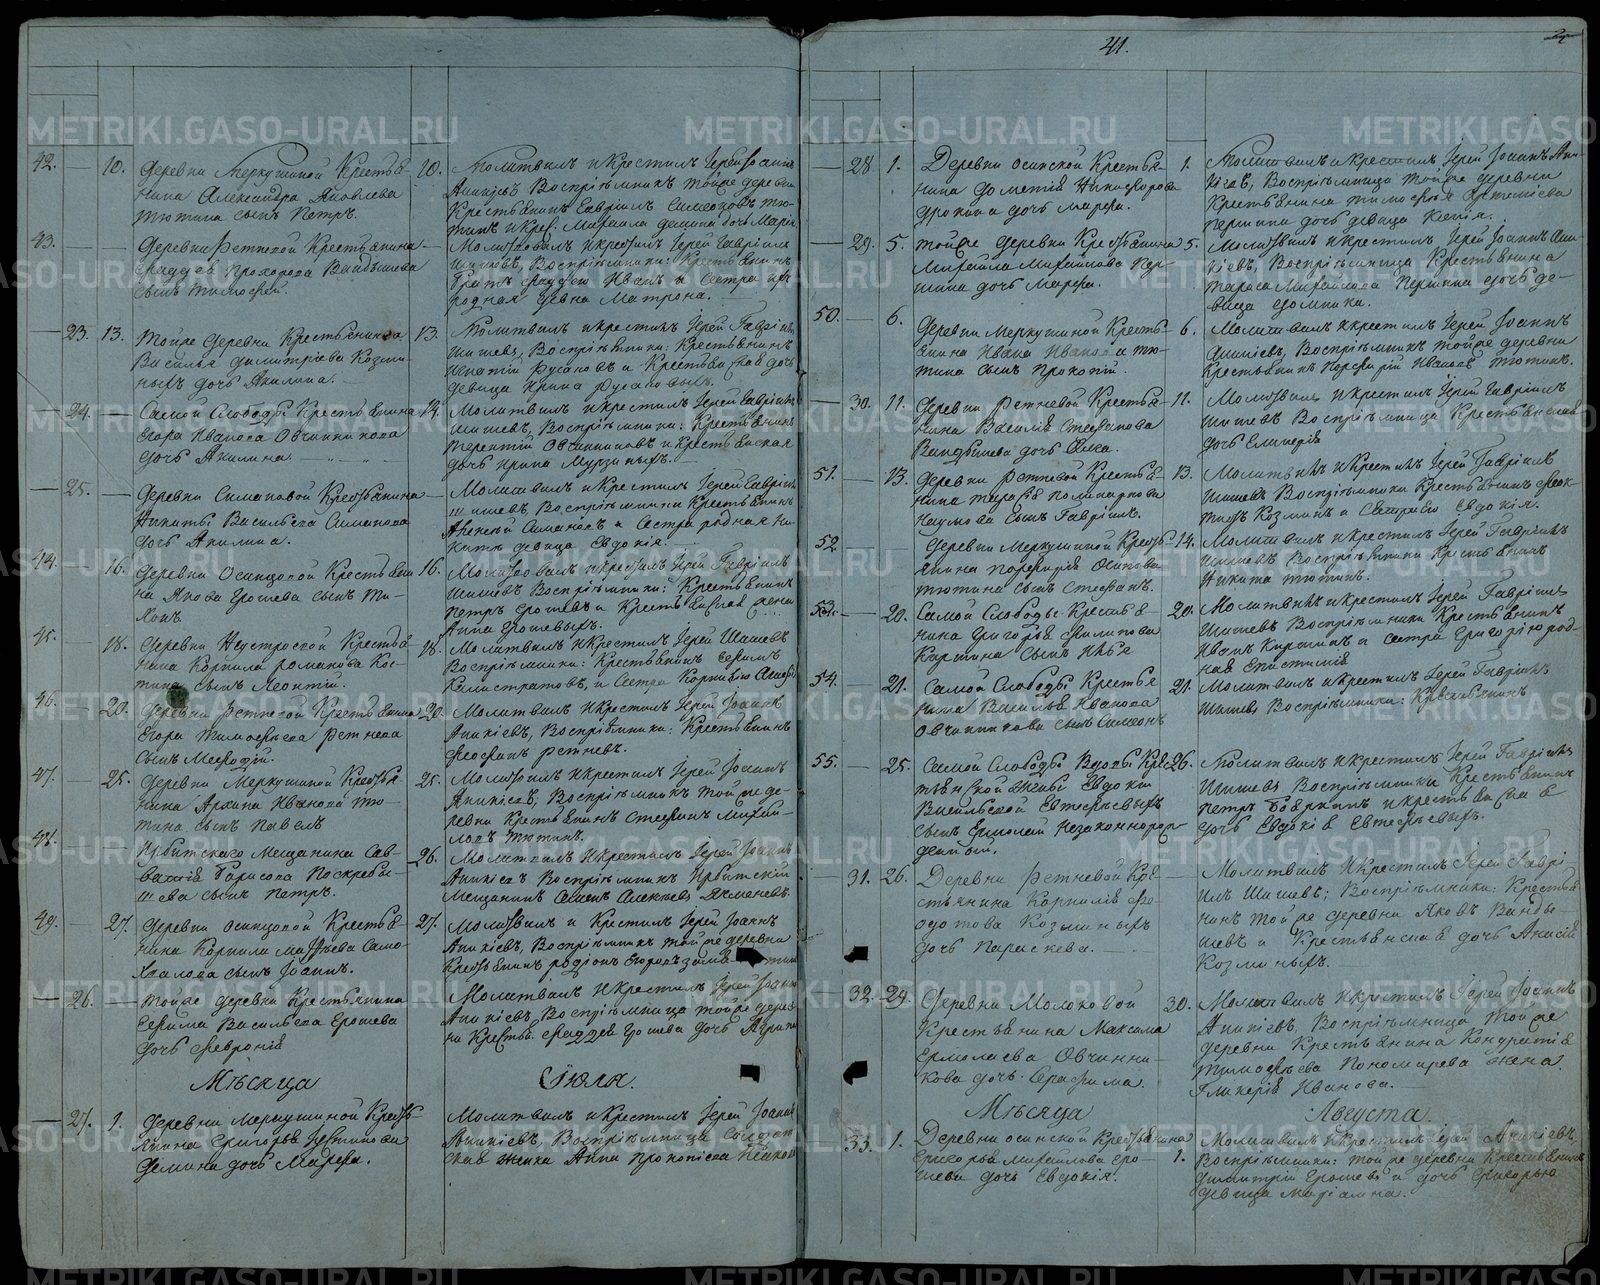 41.
42. 10. Деревни Меркушиной Крестья-
нина Александра Яковлева
Тютина сынъ Петръ.
10. Молитвилъ и крестилъ Іерей Іоаннъ
Аникіевъ, Воспріѣмникъ тойже деревни
Крестьянинъ Гавріилъ Симеоновъ Тю-
тинъ
43. Деревни Ретневой Крестьянина
Фаддея Прохорова Вандышева
сынъ Тимофей.
Молитвовалъ и крестилъ Іерей Гавріилъ
Шишевъ, Воспріѣмники: Крестьянинъ
братъ Фаддея Иванъ и Сестра их
родная девка Матрона.
23. 13. Тойже деревни Крестьянина
Василья Димитріева Козми-
ныхъ дочь Акилина.
13. Молитвилъ и крестилъ Іерей Гавріилъ
Шишевъ, Воспріѣмники: Крестьянинъ
Игнатій Русаковъ и Крестьянская дочь
девица Ирина Русаковыхъ.
24. Самой Слободы Крестьянина
Егора Иванова Овчинникова
дочь Акилина.
14. Молитвилъ и крестилъ Іерей Гавріилъ
Шишевъ, Воспріѣмники: Крестьянинъ
Терентій Овчинниковъ и Крестьянская
дочь Ирина Мурзиныхъ.
25. Деревни Симановой Крестьянина
Никиты Васильева Симанова
дочь Акилина.
Молитвилъ и крестилъ Іерей Гавріилъ
Шишевъ, Воспріѣмники Крестьянинъ
Алексей Симановъ и Сестра родная Ни-
киты девица Евдокія.
44. 16. Деревни Осинцовой Крестьяни-
на Якова Ерошева сынъ Ти-
хонъ.
16. Молитвовалъ и крестилъ Іерей Гавріилъ
Шишевъ Воспріѣмники: Крестьянинъ
Петръ Ерошевъ и Крестьянская жена
Анна Ерошевыхъ.
45. 18. Деревни Неустроевой Крестья-
нина Корнила Романова Кос-
тина сынъ Леонтій.
18. Молитвилъ и крестилъ Іерей Шишевъ
Воспріѣмники: Крестьянинъ Ефимъ
Калистратовъ, и Сестра Корнилова
46. 20. Деревни Ретневой Крестьянина
Егора Тимофеева Ретнева
сынъ Мефодій.
20. Молитвилъ и крестилъ Іерей Іоаннъ
Аникіевъ, Воспріѣмники: Крестьянинъ
Феофанъ Ретневъ.
47. 25. Деревни Меркушиной Крестья-
нина Архипа Иванова Тю-
тина сынъ Павелъ
25. Молитвилъ и крестилъ Іерей Іоаннъ
Аникіевъ, Воспріѣмникъ тойже де-
ревни Крестьянинъ Стефанъ Михай-
ловъ Тютинъ.
48. Ирбитскаго Мещанина Сав-
ватія Борисова Поскребы-
шева сынъ Петръ.
26. Молитвилъ и крестилъ Іерей Іоаннъ
Аникіевъ Воспріѣмникъ Ирбитскій
Мещанинъ Семенъ Алексеевъ
49. 27. Деревни Осинцовой Крестья-
нина Корнила Матвеева Само-
хвалова сынъ Іоаннъ.
27. Молитвилъ и крестилъ Іерей Іоаннъ
Аникіевъ, Воспріѣмникъ тойже деревни
Крестьянинъ Родіонъ
26. Тойже деревни Крестьянина
Ефима Васильева Ерошева
дочь Февронія
Молитвилъ и крестилъ Іерей Іоаннъ
Аникіевъ, Воспріѣмница тойже дерев-
ни Крестья. Фаддея Ерошева дочь
Мѣсяца Іюля.
27. 1. Деревни Меркушиной Кресть-
янина Григорья
Демина дочь Марфа.
Молитвилъ и крестилъ Іерей Іоаннъ
Аникіевъ, Воспріѣмница Солдат-
ская жена Анна Прокопіева
28. 1. Деревни Осинской Крестья-
нина Дометія Никифорова
Дрокина дочь Марфа.
1. Молитвилъ и крестилъ Іерей Іоаннъ Ани-
кіевъ, Воспріѣмница тойже деревни
Крестьянина Тимофея Артеміева
Першина дочь девица Ксенія.
29. 5. Тойже деревни Крестьянина
Михаила Михайлова Пер-
шина дочь Марфа.
5. Молитвилъ и крестилъ Іерей Іоаннъ Ани-
кіевъ, Воспріѣмница Крестьянина
Тараса Михайлова Першина дочь де-
вица Домника.
50. 6. Деревни Меркушиной Кресть-
янина Ивана Иванова Тю-
тина сынъ Прокопій.
6. Молитвилъ и крестилъ Іерей Іоаннъ
Аникіевъ, Воспріѣмникъ тойже деревни
Крестьянинъ Перфирій Ивановъ Тютинъ.
30. 11. Деревни Ретневой Крестья-
нина Василія Стефанова
Вандышева дочь
11. Молитвилъ и крестилъ Іерей Гавріилъ
Шишевъ Воспріѣмница Крестьянская
дочь
51. 13. Деревни Ретневой Крестья-
нина Тарасія Поликарпова
Наумова сынъ Гавріилъ.
13. Молитвилъ и крестилъ Іерей Гавріилъ
Шишевъ Воспріѣмники Крестьянинъ Феок-
тистъ Козминъ и Сестра его Евдокія.
52. Деревни Меркушиной Кресть-
янина Порфирія Осипова
Тютина сынъ Стефанъ.
14. Молитвилъ и крестилъ Іерей Гавріилъ
Шишевъ Воспріѣмники Крестьянинъ
Никита Тютинъ.
53. 20. Самой Слободы Крестья-
нина Григорья Филипова
Киргина сынъ Илья
20. Молитвилъ и крестилъ Іерей Гавріилъ
Шишевъ Воспріѣмники Крестьянинъ
Иванъ Киргинъ и сестра Григорію род-
ная Епистимія
54. 21. Самой Слободы Крестья-
нина Василья Иванова
Овчинникова сынъ Симеонъ
21. Молитвилъ и крестилъ Іерей Гавріилъ
Шишевъ Воспріѣмники: Крестьянинъ
55. 25. Самой Слободы Вдовы Крес-
тьянской жены Евдокіи
Васильевой Евтефеевыхъ
сынъ Ермолай незаконнорож-
денной.
26. Молитвилъ и крестилъ Іерей Гавріилъ
Шишевъ Воспріѣмники Крестьянинъ
Петръ Бояркинъ и крестьянская
дочь Евдокія Евтефеевыхъ.
31. 26. Деревни Ретневой Кре-
стьянина Корнилія Фе-
одотова Козминыхъ
дочь Параскева.
Молитвилъ и крестилъ Іерей Гаврі-
илъ Шишевъ; Воспріѣмники: Крестья-
нинъ тойже деревни Яковъ Ванды-
шевъ и Крестьянская дочь Анисія
Козминыхъ.
32. 29. Деревни Молоковой
Крестьянина Максима
Ермолаева Овчинни-
кова дочь Серафима.
30. Молитвилъ и крестилъ Іерей Іоаннъ
Аникіевъ, Воспріѣмница тойже
деревни Крестьянина Кондратія
Тимофеева Пономарева жена
Гликерія Иванова.
Мѣсяца Августа
33. 1. Деревни Осинской Крестьянина
Григорья Михайлова Еро-
шева дочь Евдокія.
1. Молитвилъ и крестилъ Іерей Аникіевъ,
Воспріѣмники: тойже деревни Крестьянинъ
Димитрій Ерошевъ и дочь Григорью
девица Маріамна.
METRIKI.GASO-URAL.RU